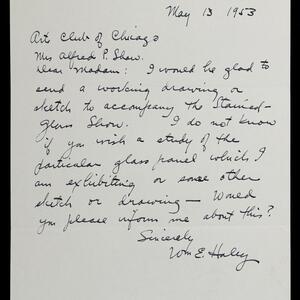 May 13 1953
Art Club of Chicago
Mrs Alfred P. Shaw.
Dear Madam: I would be glad to
send a working drawing or
sketch to accompany the Stained-
Glass Show. I do not know
if you wish a study of the
particular glass panel which I
am exhibiting or some other
sketch or drawing — Would
you please inform me about this?
Sincerely
Wm E. Haley